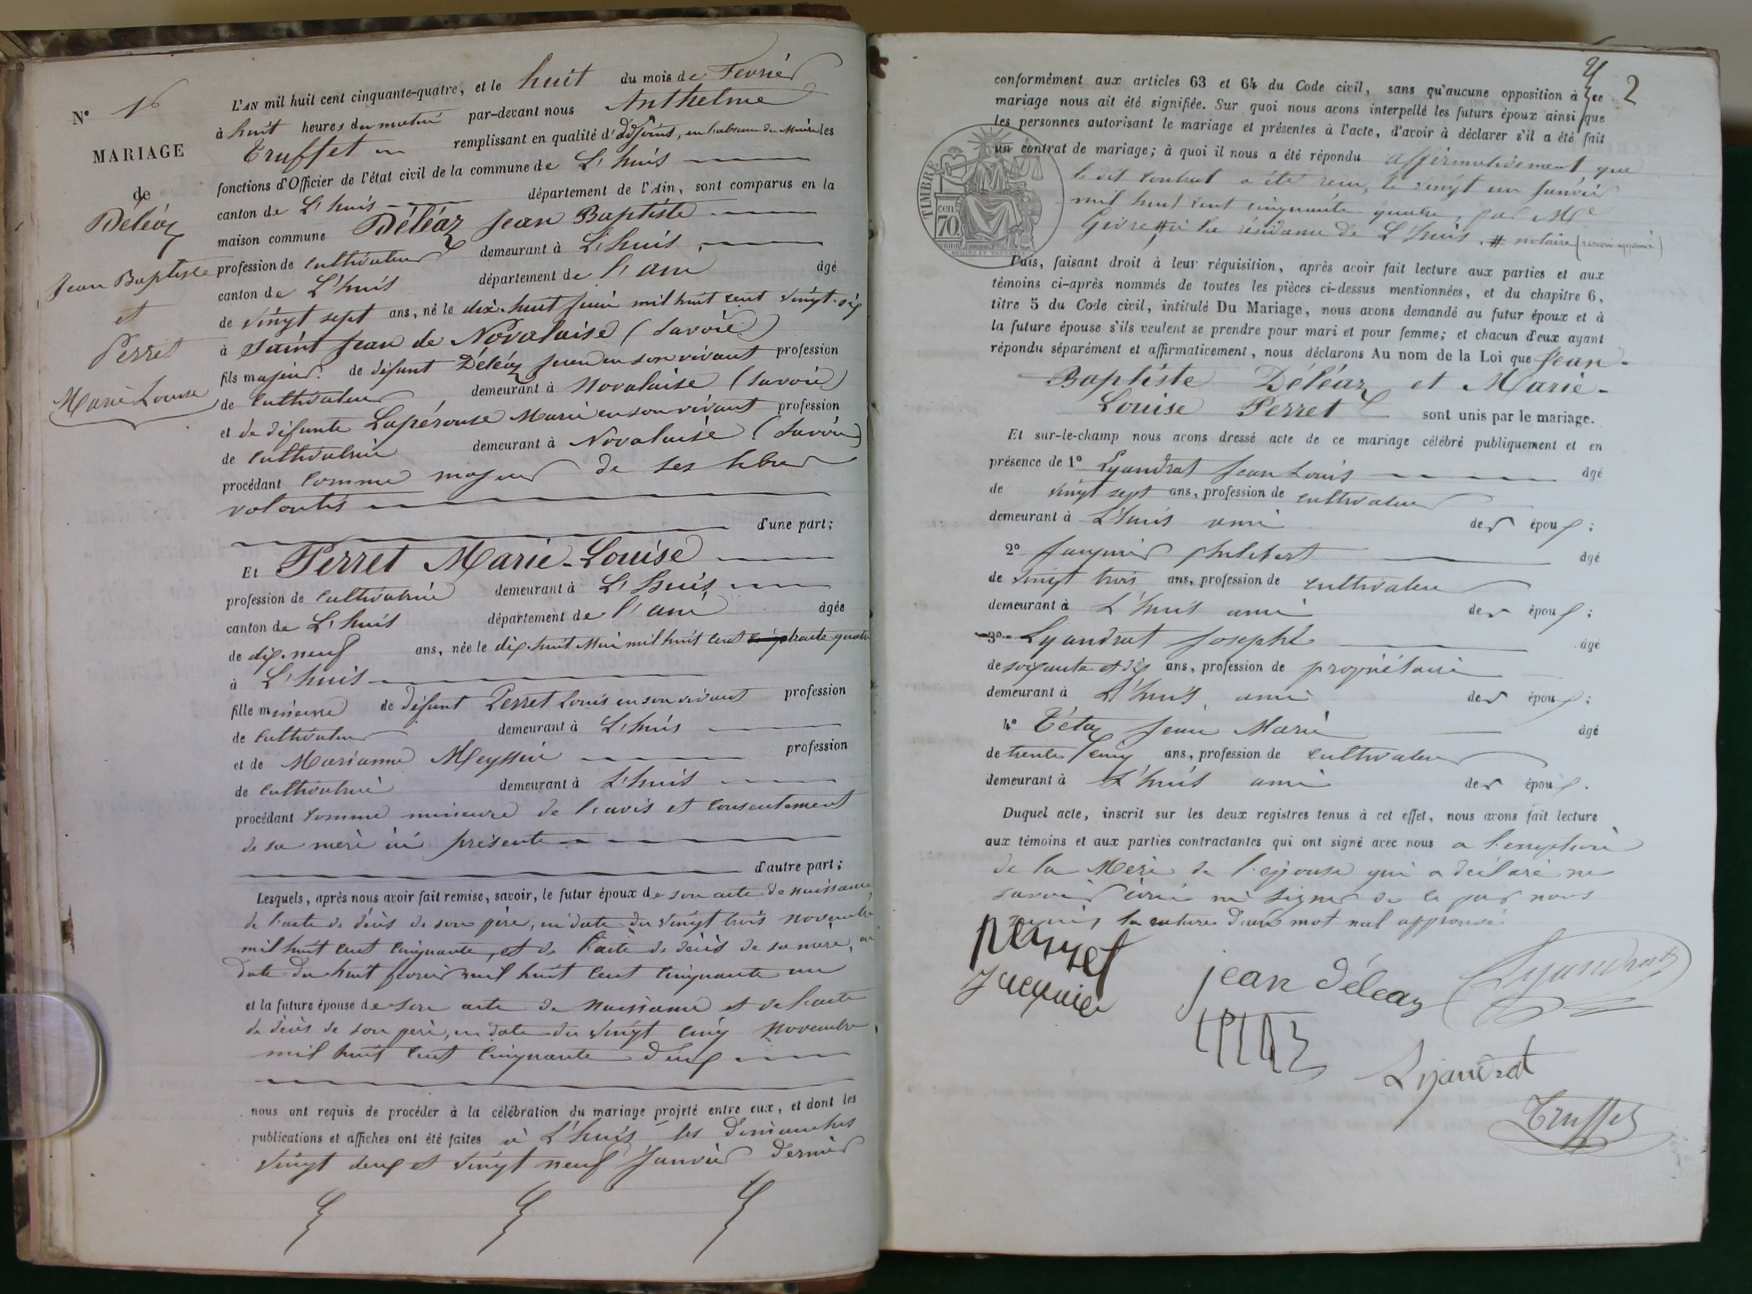 N° 16
MARIAGE
de
Déléaz
Jean Baptiste
et
Perret
Marie Louise
L'AN mil huit cent cinquante-quatre, et le huit du mois de Fevrier
à huit heures du matin par-devant nous Anthelme
Truffet remplissant en qualité d'adjoint, en l'absence du Maire les
fonctions d'Officier de l'état civil de la commune de L'huis
canton de L'huis département de l'Ain, sont comparus en la
maison commune Déléaz Jean Baptiste
profession de cultivateur demeurant à L'huis
canton de L'huis département de l'ain âgé
de vingt sept ans, né le dix-huit juin mil huit cent vingt-six
à Saint Jean de Novalaise (Savoie)
fils majeur de défunt Déléaz Jean en son vivant profession
de cultivateur demeurant à Novalaise (Savoie)
et de défunte Lapérouse Marie en son vivant profession
de cultivatrice demeurant à Novalaise (Savoie)
procédant comme majeur de ses libres
volontés
d'une part;
Et Perret Marie-Louise
profession de cultivatrice demeurant à L'huis
canton de L'huis département de l'ain âgée
de dix-neuf ans, née le dix huit mil huit cent trente quatre
à L'huis
fille mineure de défunt Perret Louis en son vivant profession
de cultivateur demeurant à L'huis
et de Marianne Meyssin profession
de cultivatrice demeurant à L'huis
procédant comme mineure de l'avis et consentement
de sa mère ici présente
d'autre part;
Lesquels, après nous avoir fait remise, savoir, le futur époux de son acte de naissance
de l'acte de décès de son père, en date du vingt trois novembre
mil huit cent cinquante, et de l'acte de décès de sa mère, en
date du huit fevrier mil huit cent cinquante un
et la future épouse de son acte de naissance et de l'acte
de décès de son père, en date du vingt cinq novembre
mil huit cent cinquante deux
nous ont requis de procéder à la célébration du mariage projeté entre eux, et dont les
publications et affiches ont été faites à L'huis les dimanches
vingt deux et vingt neuf Janvier dernier
2
conformément aux articles 63 et 64 du Code civil, sans qu'aucune opposition à ce
mariage nous ait été signifiée. Sur quoi nous avons interpellé les futurs époux ainsi que
les personnes autorisant le mariage et présentes à l'acte, d'avoir à déclarer s'il a été fait
un contrat de mariage; à quoi il nous a été répondu affirmativement que
le dit contrat a été reçu le vingt un janvier
mil huit cent cinquante quatre, par Me
à la résidence de L'huis. # notaire (renvoi approuvé)
TIMBRE
70
Puis, faisant droit à leur réquisition, après avoir fait lecture aux parties et aux
témoins ci-après nommés de toutes les pièces ci-dessus mentionnées, et du chapitre 6,
titre 5 du Code civil, intitulé Du Mariage, nous avons demandé au futur époux et à
la future épouse s'ils veulent se prendre pour mari et pour femme; et chacun d'eux ayant
répondu séparément et affirmativement, nous déclarons Au nom de la Loi que Jean-
Baptiste Déléaz et Marie-
Louise Perret sont unis par le mariage.
Et sur-le-champ nous avons dressé acte de ce mariage célébré publiquement et en
présence de 1° Lyandrat Jean Louis âgé
de vingt sept ans, profession de cultivateur
demeurant à L'huis ami des époux;
2° philibert âgé
de vingt trois ans, profession de cultivateur
demeurant à L'huis ami des époux;
3° Lyandrat Joseph âgé
de soixante et dix ans, profession de propriétaire
demeurant à L'huis ami des époux;
4° Tétaz Jean Marie âgé
de trente cinq ans, profession de cultivateur
demeurant à L'huis ami des époux.
Duquel acte, inscrit sur les deux registres tenus à cet effet, nous avons fait lecture
aux témoins et aux parties contractantes qui ont signé avec nous a l'exception
de la Mère de l'épouse qui a déclaré ne
savoir écrire ni signer de ce par nous
requis la rature d'un mot nul approuvée
jean déleaz
Lyandrat
Lyandrat
Truffet